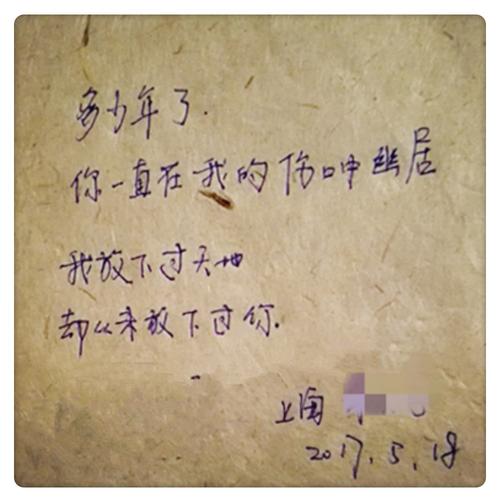 多少年了.
你一直在我的伤口中幽居
我放下过天地
却从来放下过你.
上海
2017.5.18